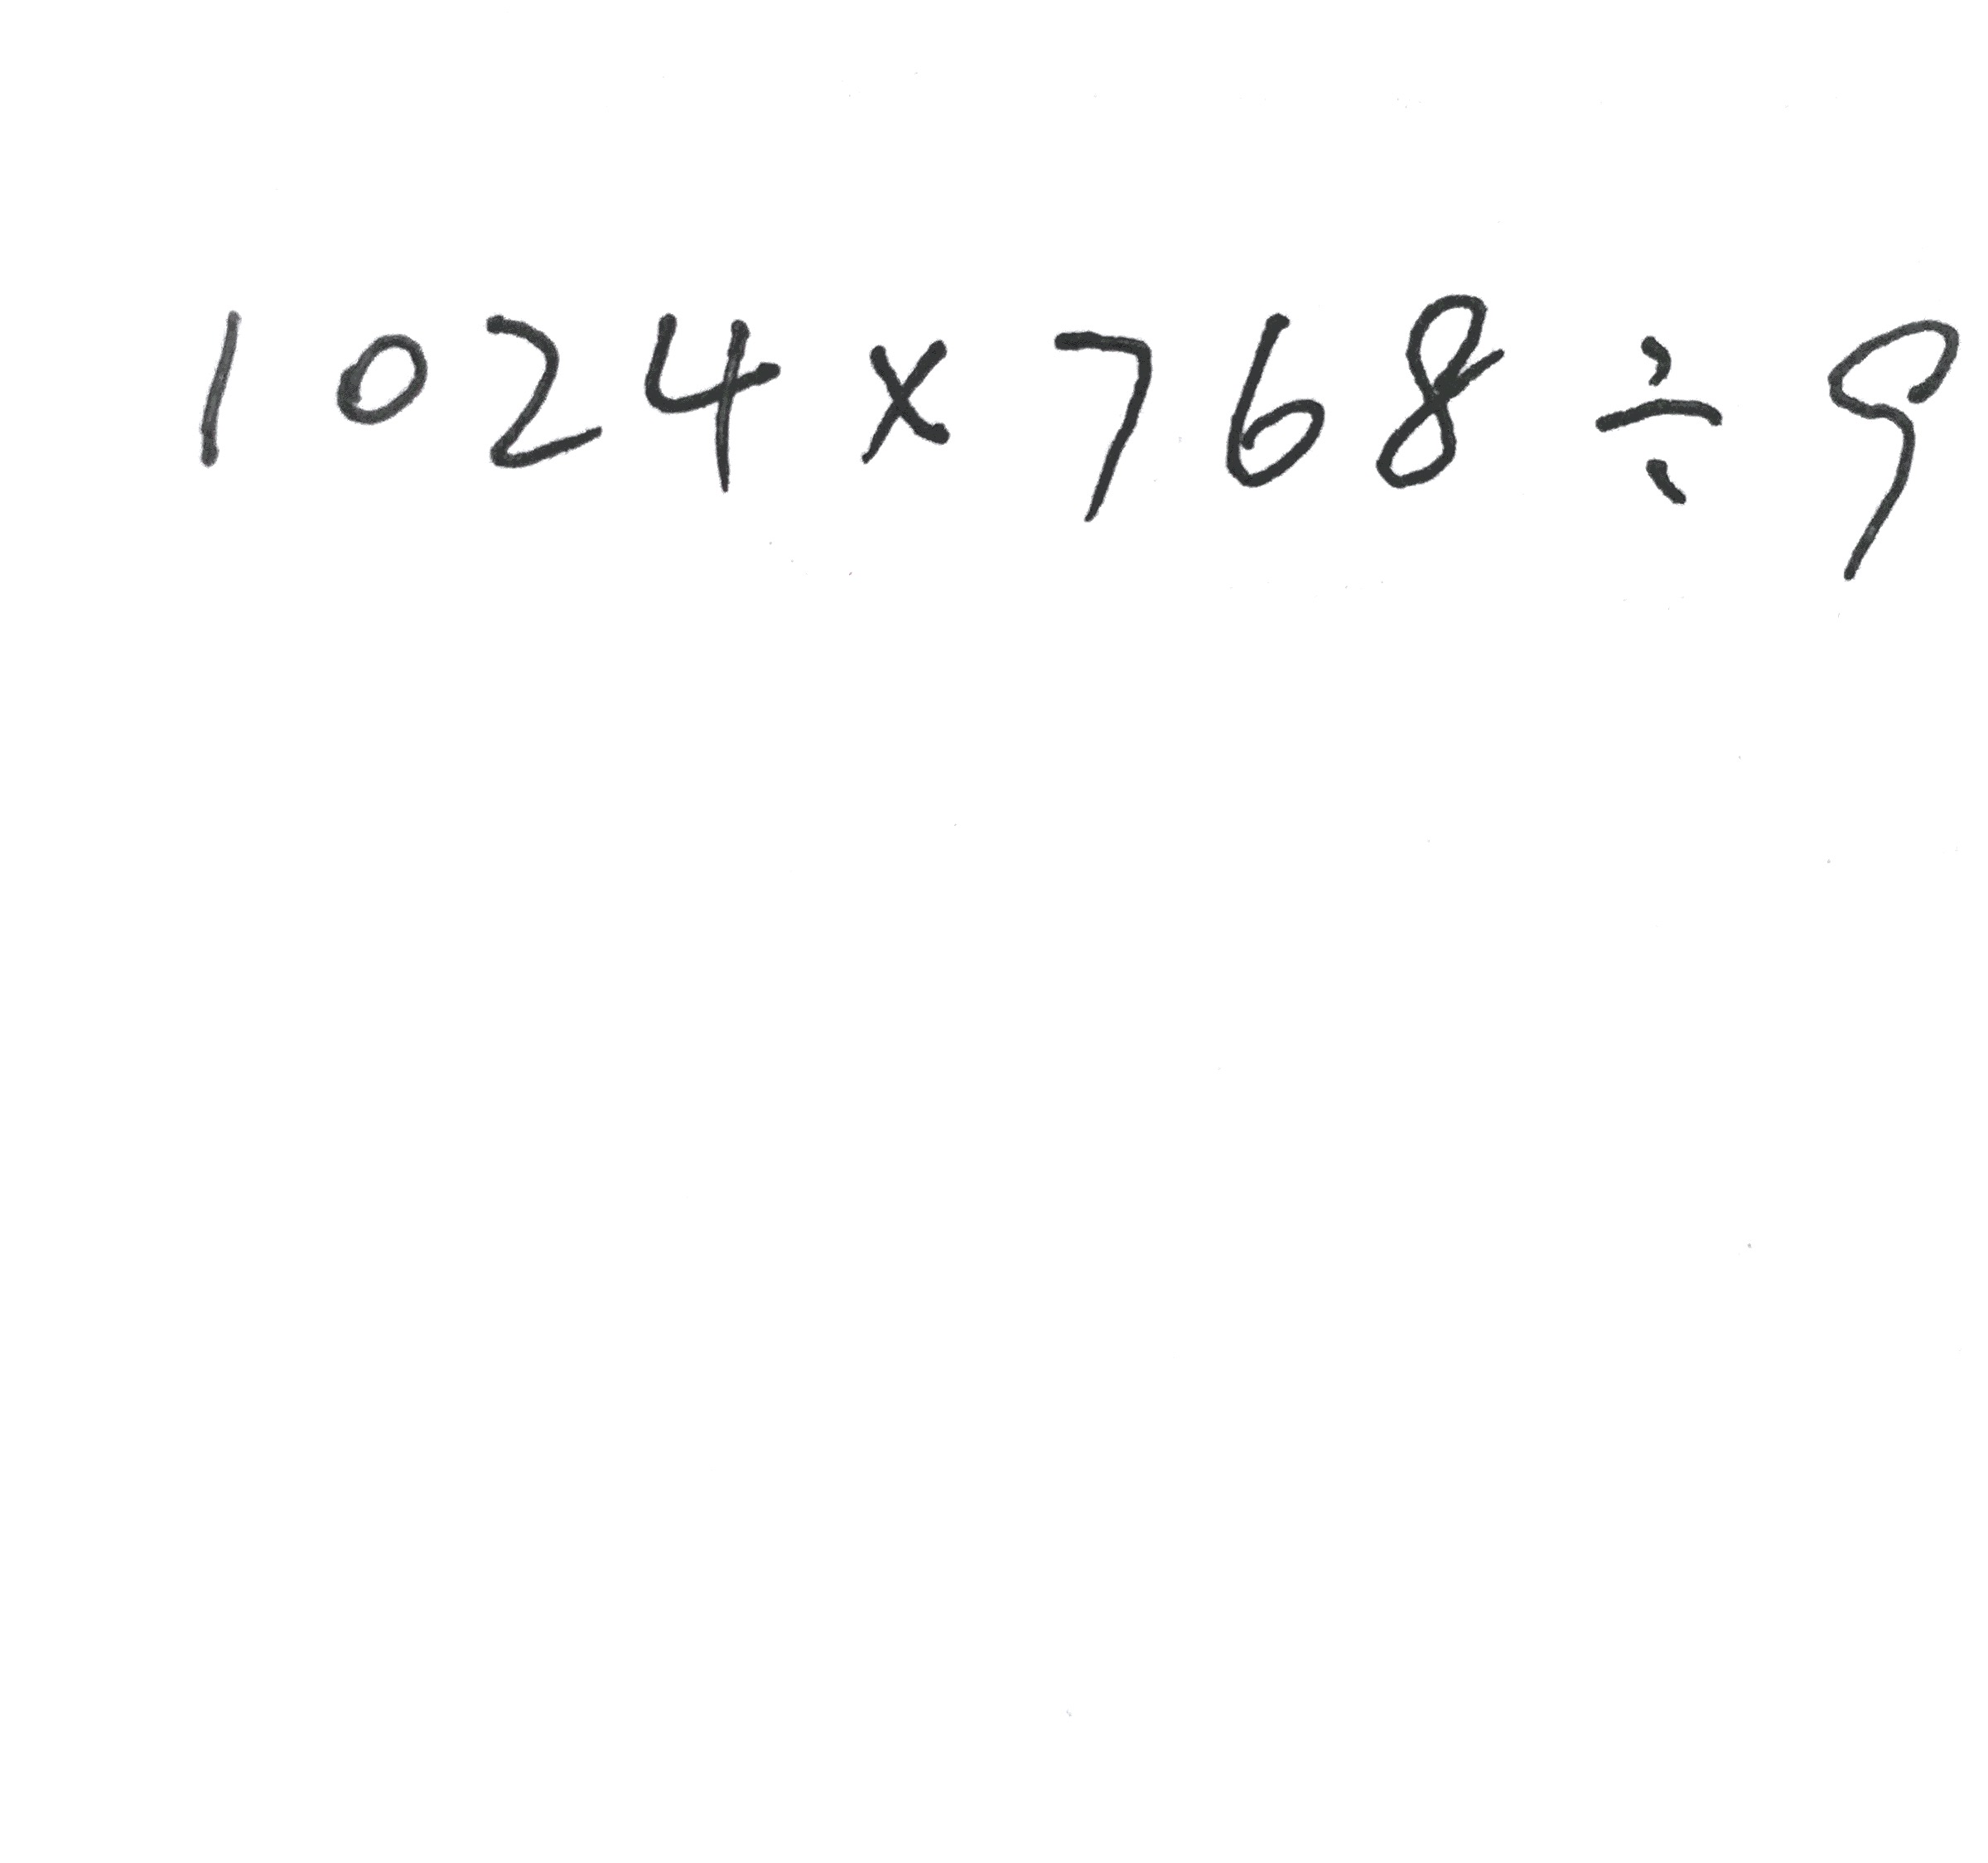 1024×768÷9